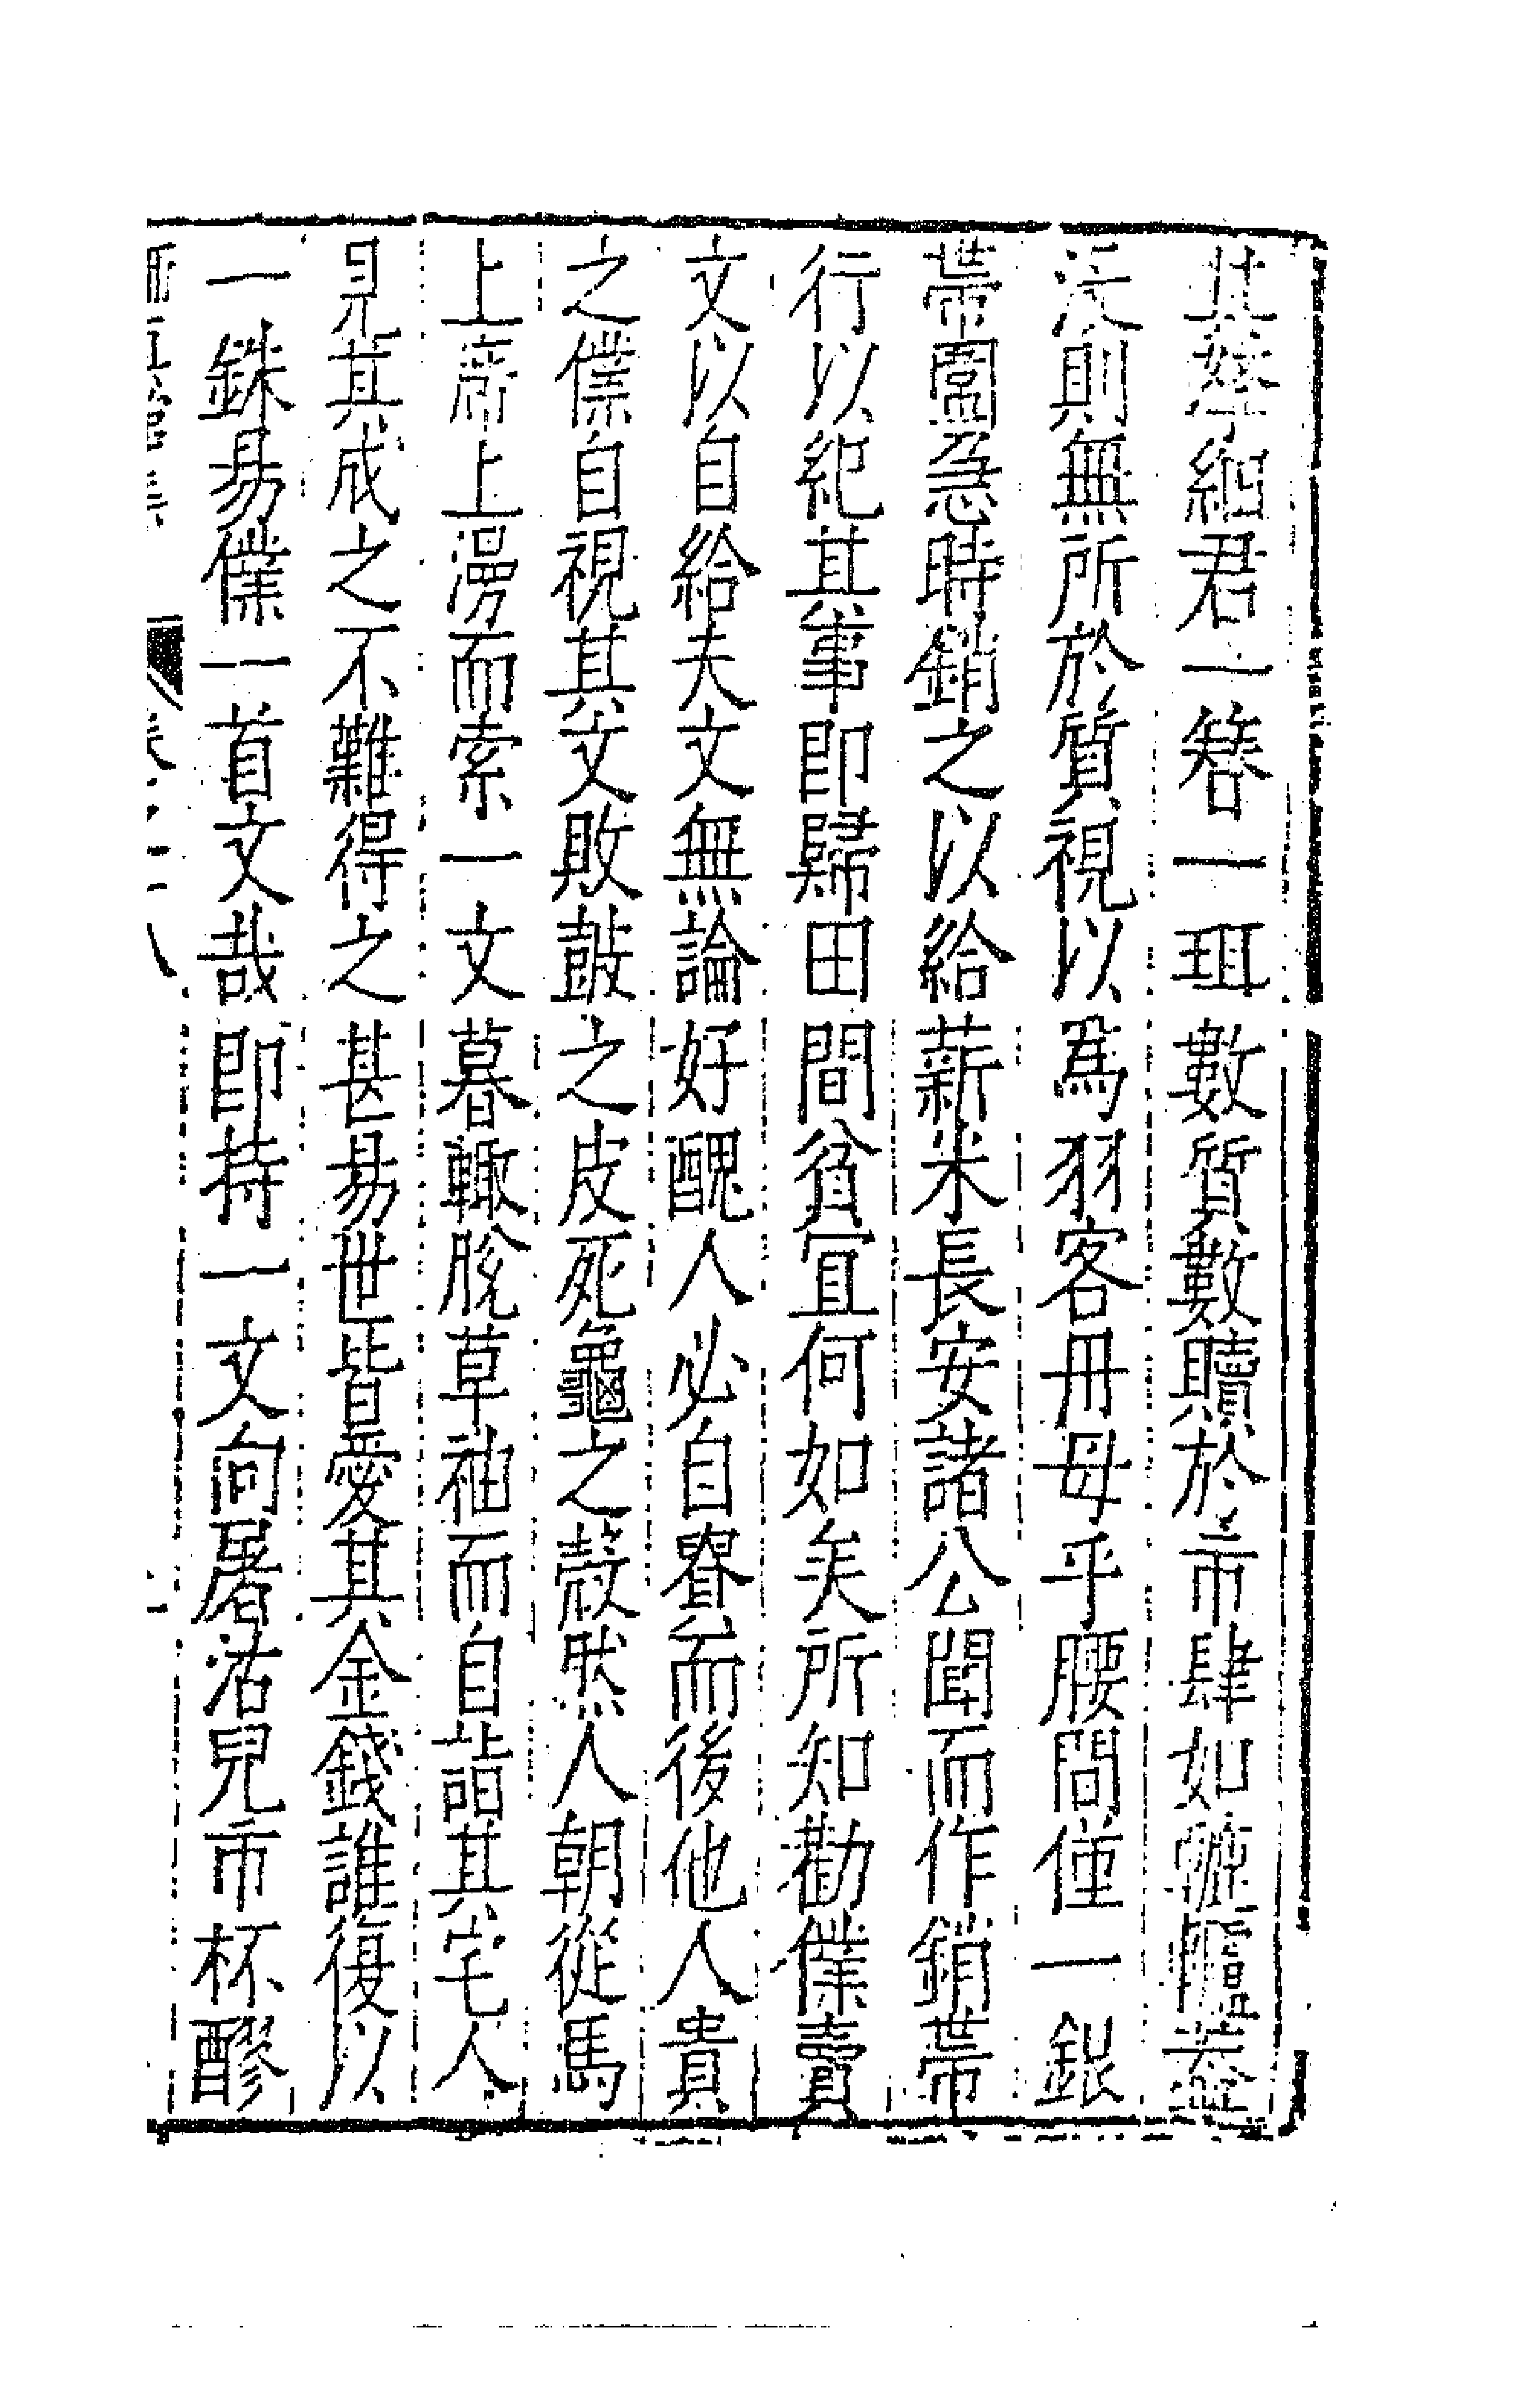 其孥細君一簪一珥數質數贖於市肆如轆轤蓋
則無所於質視以爲羽客毋乎腰間僅一銀
帶圍急時銷之以給薪米長安諸公聞而作銷帶
行以紀其事即歸田間貧宜何如矣所知勸僕賣
文以自給夫文無論好醜人必自而後他人貴
之僕自視其文敗鼓之皮死龜之殼然人朝從馬
上廝上漫而索一文暮輙脫草袖而自詣其宅人
見其成之不難得之甚易世皆愛其金錢誰復以
一銖易僕一首文哉即持一文向屠沽兒市杯醪